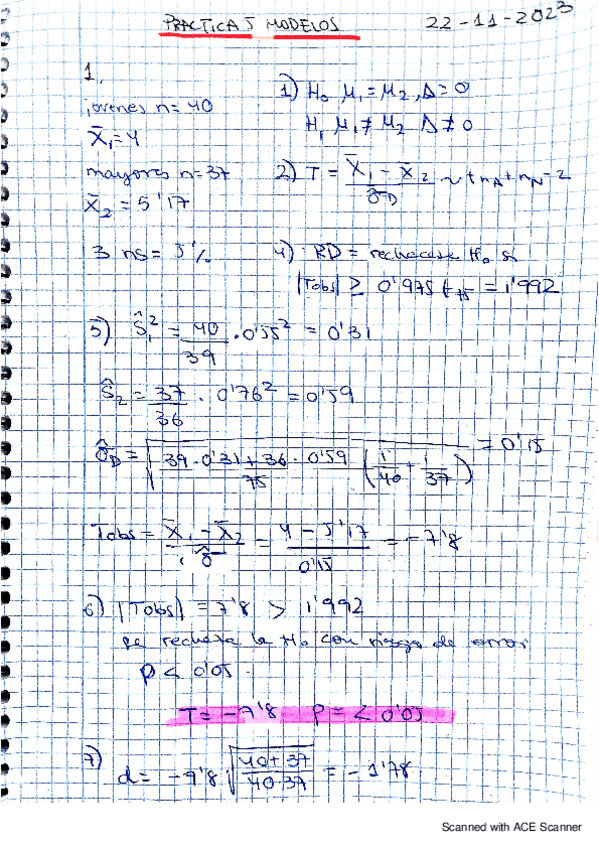 PRACTICA 5 MODELOS
22-11-2023
1.
jovenes n=40
X̄₁=4
mayores n=37
X̄₂=5'17
3 ns=5%
1) H₀ μ₁=μ₂, Δ=0
H₁ μ₁≠μ₂ Δ≠0
2) T = (X̄₁ - X̄₂)/σ̂D ~ t nA + nN - 2
4) RD = rechacese H₀ si
|Tobs| ≥ 0'975 t₇₅ = 1'992
5) Ŝ₁² = 40/39 · 0'55² = 0'31
Ŝ₂ = 37/36 · 0'76² = 0'59
σ̂D = √(39·0'31+36·0'59/75 (1/40 + 1/37)) = 0'15
Tobs = (X̄₁ - X̄₂)/σ̂ = (4 - 5'17)/0'15 = -7'8
6) |Tobs| = 7'8 > 1'992
se rechaza la H₀ con riesgo de error
P < 0'05.
T = -7'8 P = < 0'05
7) d = -7'8 √(40+37/40·37) = -1'78
Scanned with ACE Scanner